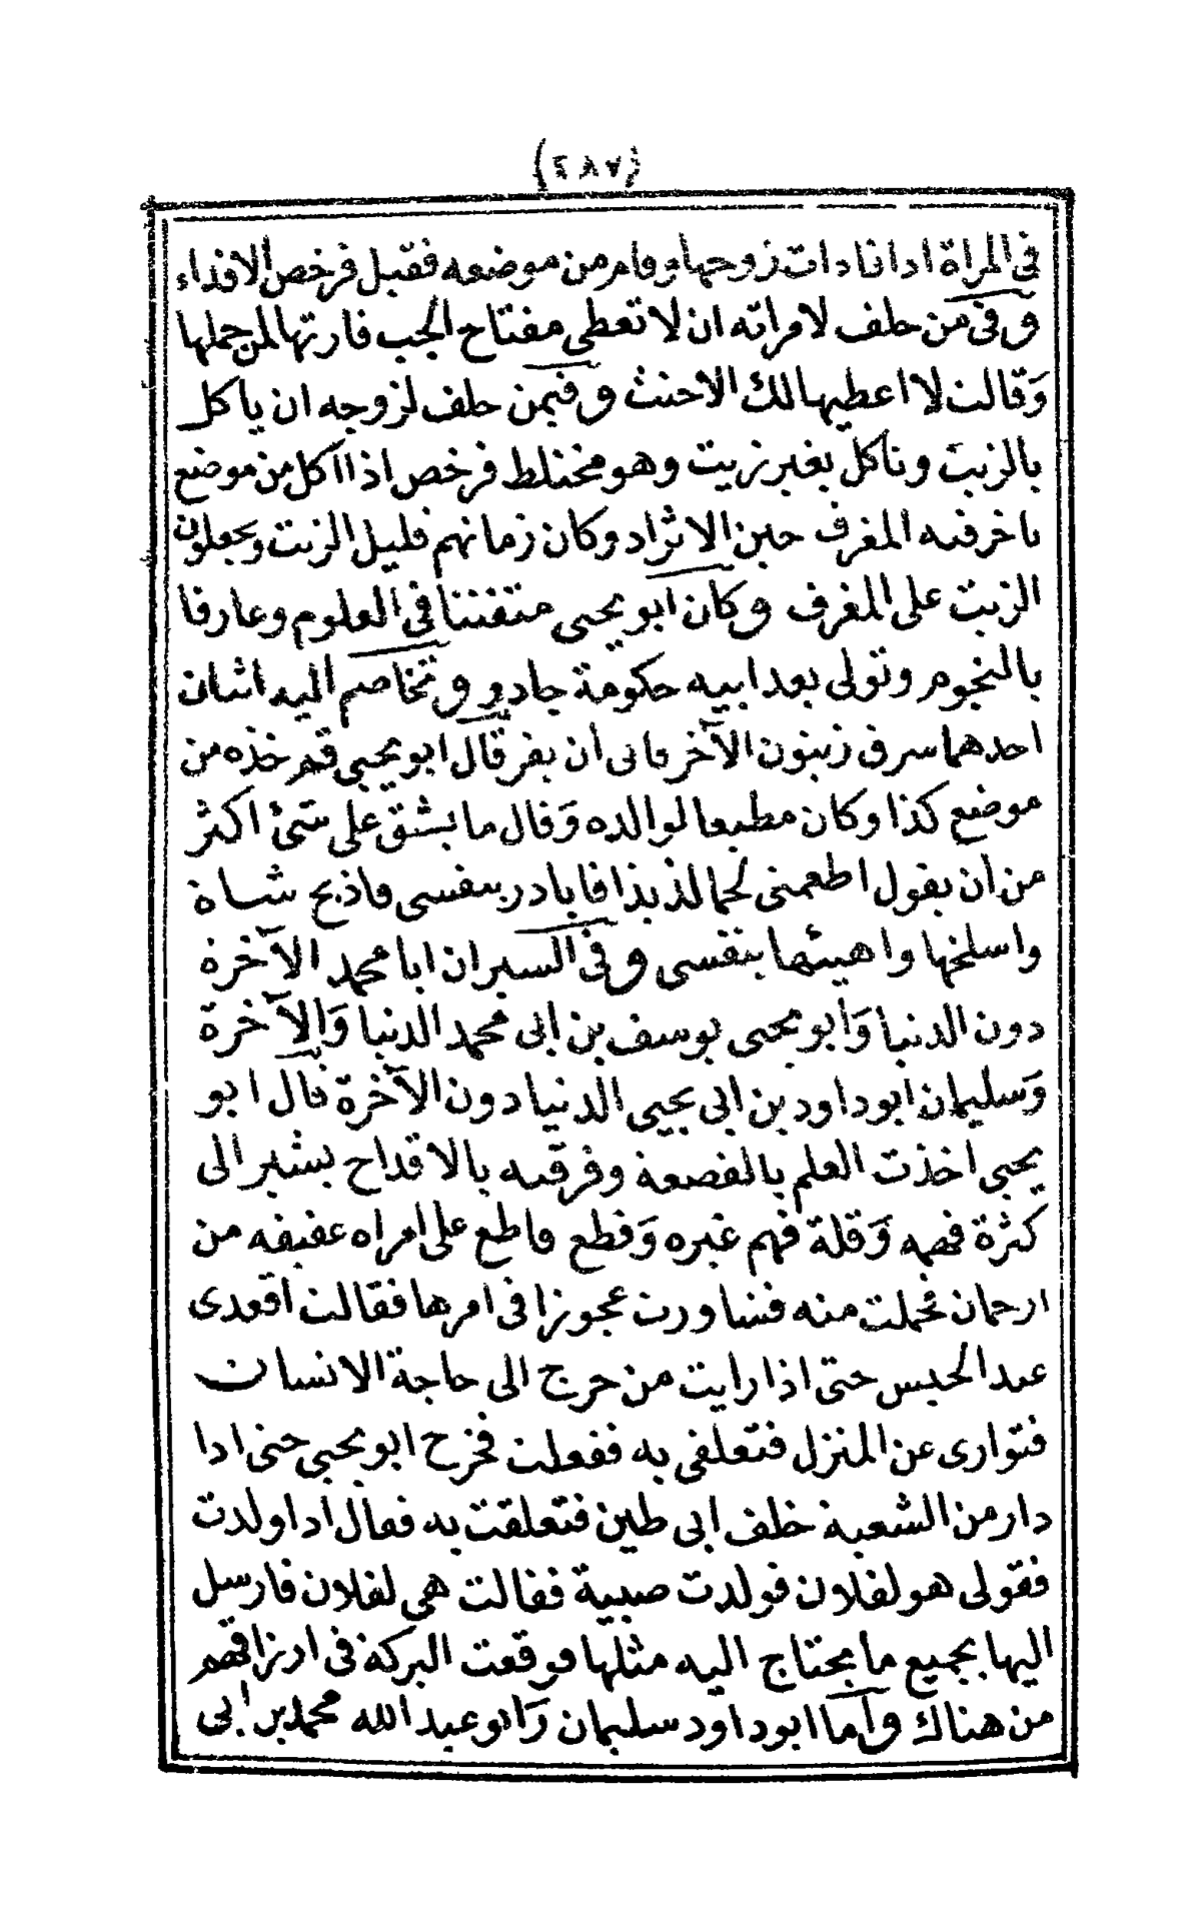 (٤٨٧)
فى المراة اذا نادات زوجها وقام من موضعه فقبل فرخص الافداء
وفى من حلف لامراته ان لا تعطى مفتاح الجب فارتها لمن حملها
وَقالت لا اعطيها لك الاحنث وفيمن حلف لزوجه ان ياكل
بالزيت وتاكل بغير زيت وهو مختلط فرخص اذا اكل من موضع
تاخر فيه المغرف حين الاثراد وكان زمانهم قليل الزيت ويجعلون
الزيت على المغرف وكان ابو يحيى متفننا فى العلوم وعارفا
بالنجوم وتولى بعد ابيه حكومة جادو وتخاصم اليه اثنان
احدهما سرق زيتون الآخر فابى ان يقر قال ابو يحيى قم خذه من
موضع كذا وكان مطيعا لوالده وَقال ما يشق على شئ اكثر
من ان يقول اطعمنى لحما لذيذا فابادر بنفسى فاذبح شاة
واسلخها واهيئها بنفسى وفى السير ان ابا محمد الآخرة
دون الدنيا وَابو يحيى يوسف بن ابى محمد الدنيا وَالآخرة
وَسليمان ابو داود بن ابى يحيى الدنيا دون الآخرة قال ابو
يحيى اخذت العلم بالقصعة وفرقته بالاقداح يشير الى
كثرة فهمه وَقلة فهم غيره وَقطع قاطع على امراه عفيفه من
ارجان فحملت منه فشاورت عجوزا فى امرها فقالت اقعدى
عند الحبس حتى اذا رايت من خرج الى حاجة الانسان
فتوارى عن المنزل فتعلقى به ففعلت فخرج ابو يحيى حتى اذا
دار من الشعبة خلف ابى طين فتعلقت به فقال اذا ولدت
فقولى هو لفلان فولدت صبية فقالت هى لفلان فارسل
اليها بجميع ما يحتاج اليه مثلها فوقعت البركة فى ارزاقهم
من هناك واما ابو داود سليمان وَابو عبد الله محمد بن ابى